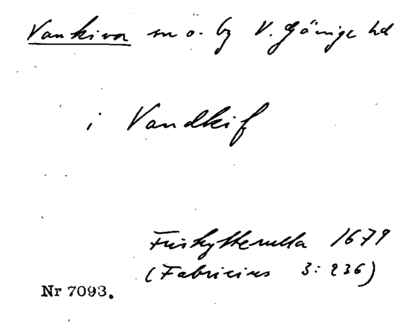 Vankiva sn o. by V. Göinge hd
i Vandkif
Friskytterulla 1679
(Fabricius 3: 236)
Nr 7093.